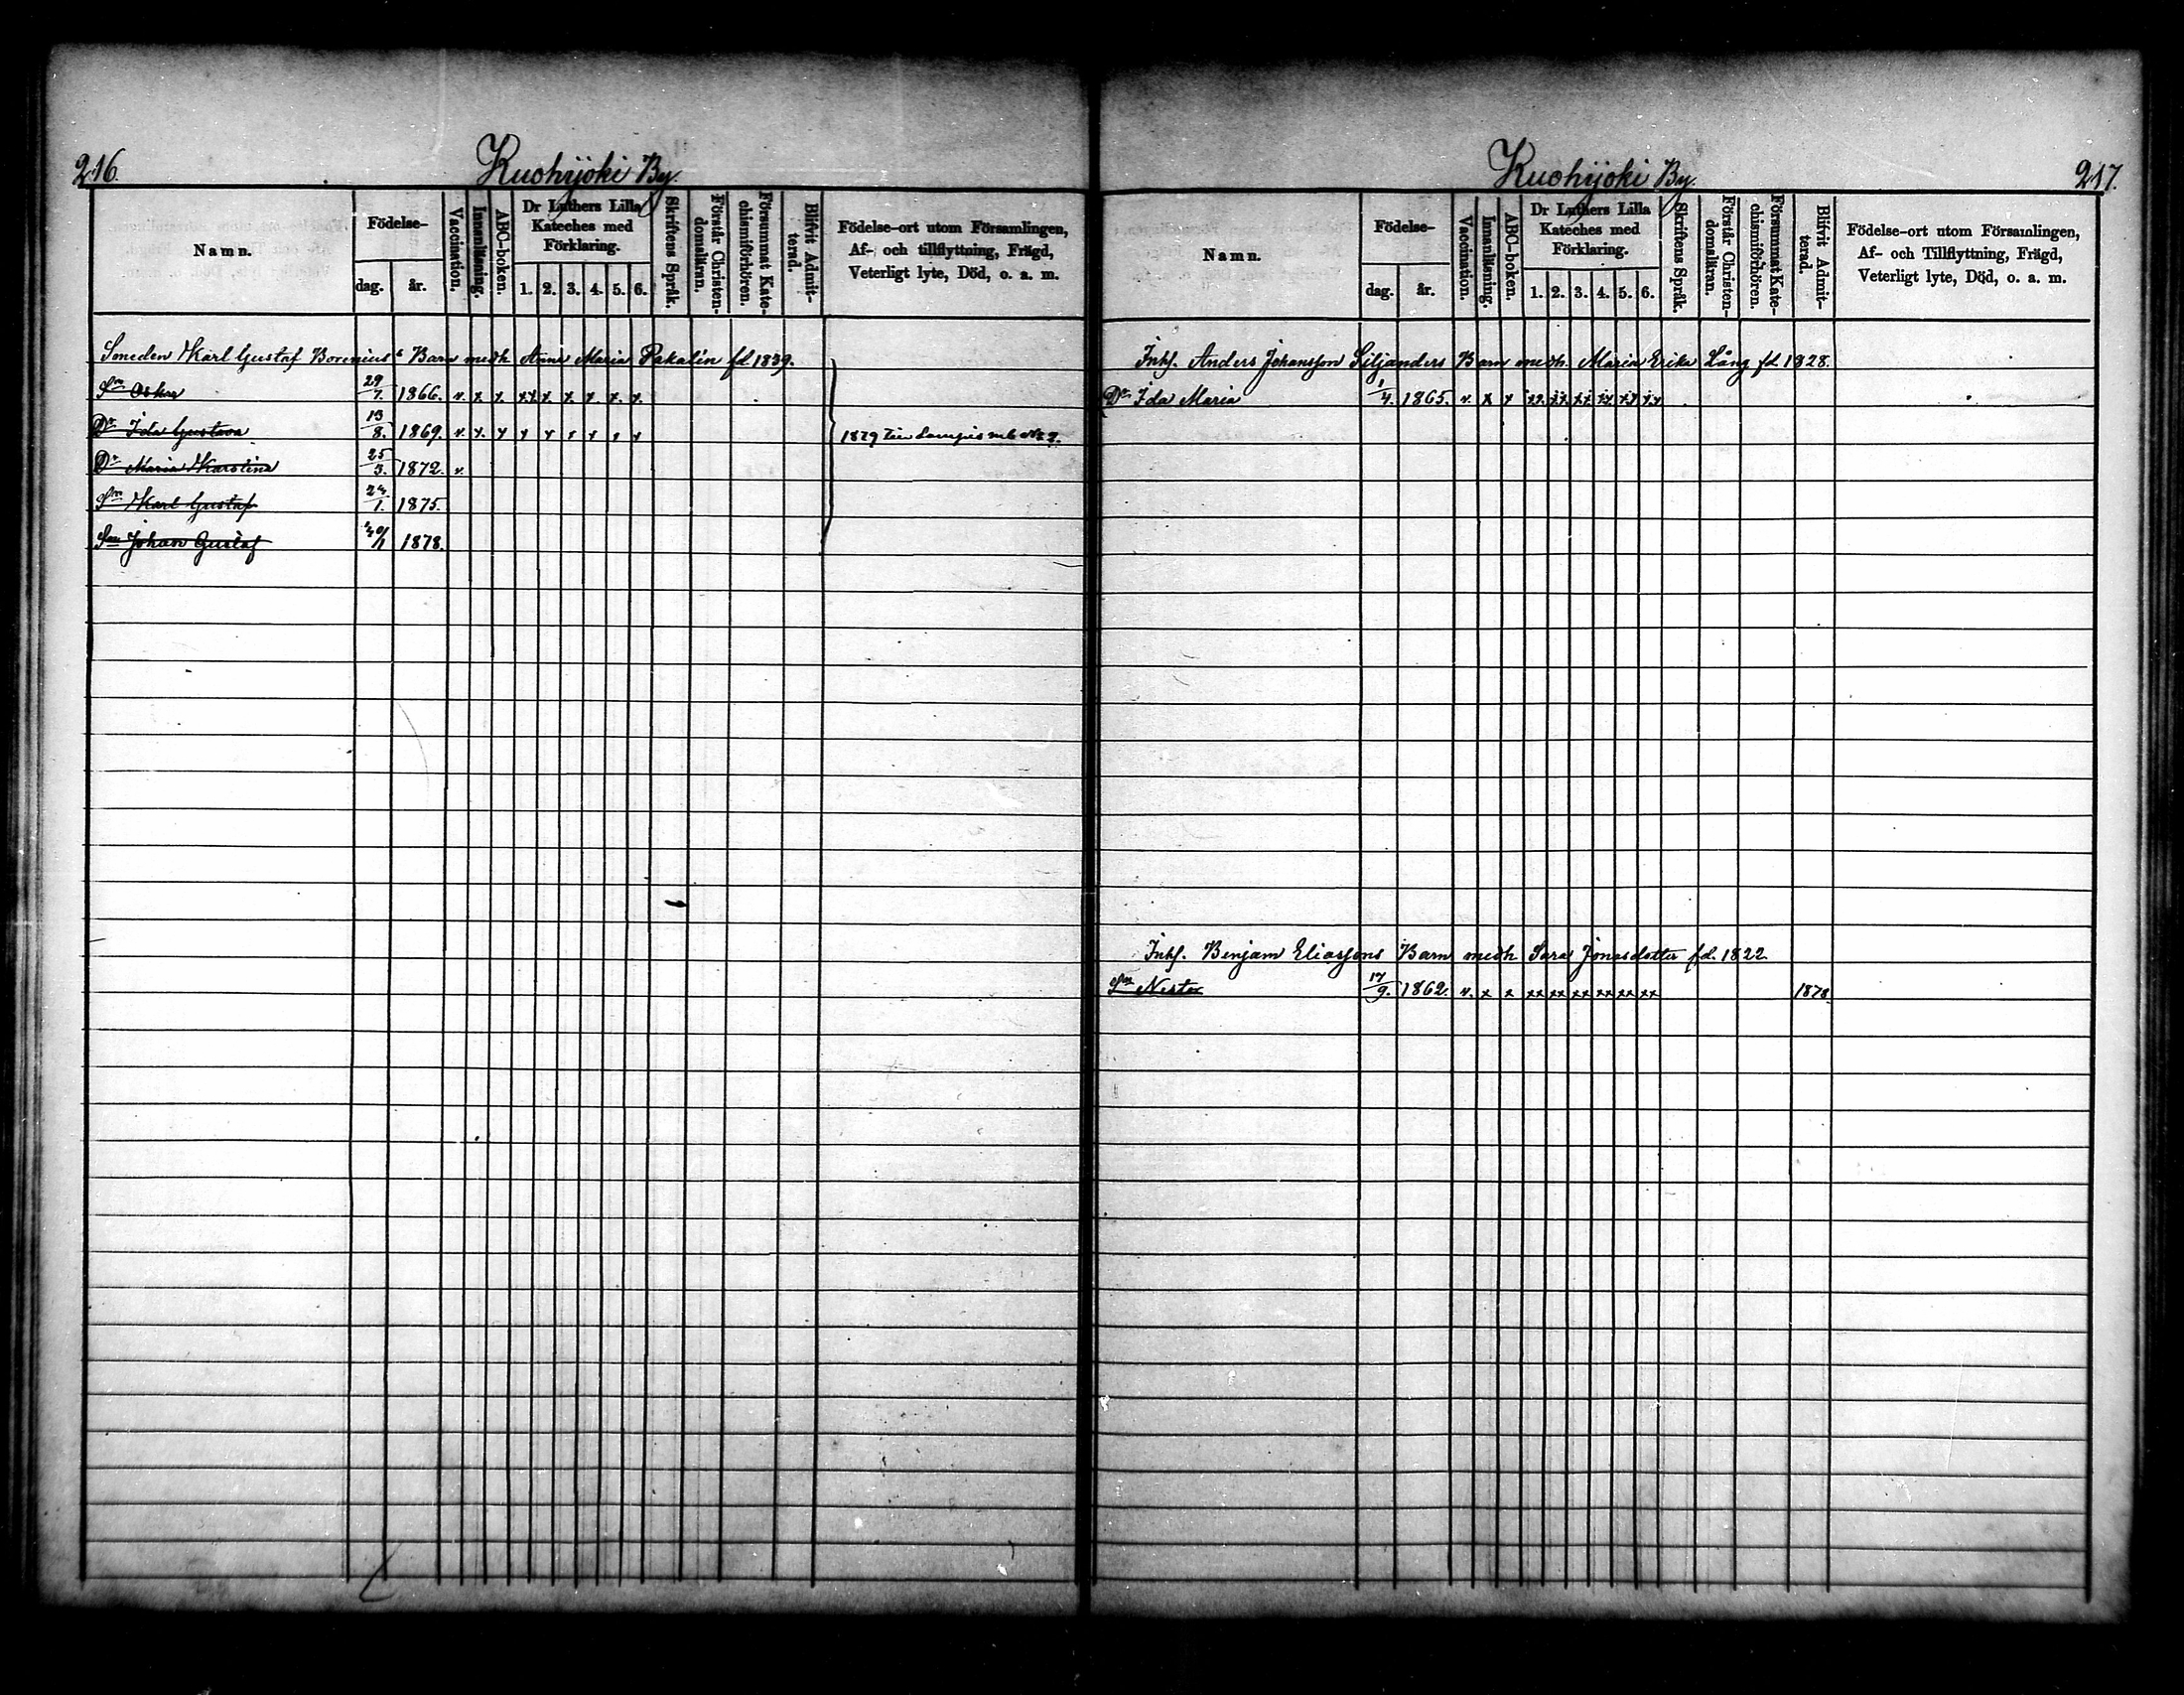 216.
Kuohijoki By.
Namn.
Födelse-
dag.
år.
Vaccination.
Innanläsning.
ABC-boken.
Dr Luthers Lilla
Kateches med
Förklaring.
1. 2. 3. 4. 5. 6.
Skriftens Språk.
Förstår Christen-
domsläran.
Försummat Kate-
chismiförhören.
Blifvit Admit-
terad.
Födelse-ort utom Församlingen,
Af- och tillflyttning, Frägd,
Veterligt lyte, Död, o. a. m.
Smeden Karl Gustaf Borenius's Barn medh Anna Maria Pakalén fd 1839.
Sn Oskar 29/7. 1866. v. x x xx x x x x x.
Dr Ida Gustava 13/8. 1869. v. x. x x x x x x x
1879 till Lampis mb
Dr Maria Karolina 25/3. 1872. v.
Sn Karl Gustaf 24/1. 1875.
Son Johan Gustaf 20/1 1878.
Kuohijoki By.
217.
Namn.
Födelse-
dag.
år.
Vaccination.
Innanläsning.
ABC-boken.
Dr Luthers Lilla
Kateches med
Förklaring.
1. 2. 3. 4. 5. 6.
Skriftens Språk.
Förstår Christen-
domsläran.
Försummat Kate-
chismiförhören.
Blifvit Admit-
terad.
Födelse-ort utom Församlingen,
Af- och Tillflyttning, Frägd,
Veterligt lyte, Död, o. a. m.
Inhs. Anders Johansson Siljanders Barn medh. Maria Erika Lång fd. 1828.
Dr Ida Maria 1/4. 1865. v. x x xx xx xx xx xx xx
Inhs. Benjam Eliassons Barn medh Sara Jonasdotter fd. 1822
Sn Nestor 17/9. 1862. v. x x xx xx xx xx xx xx 1878